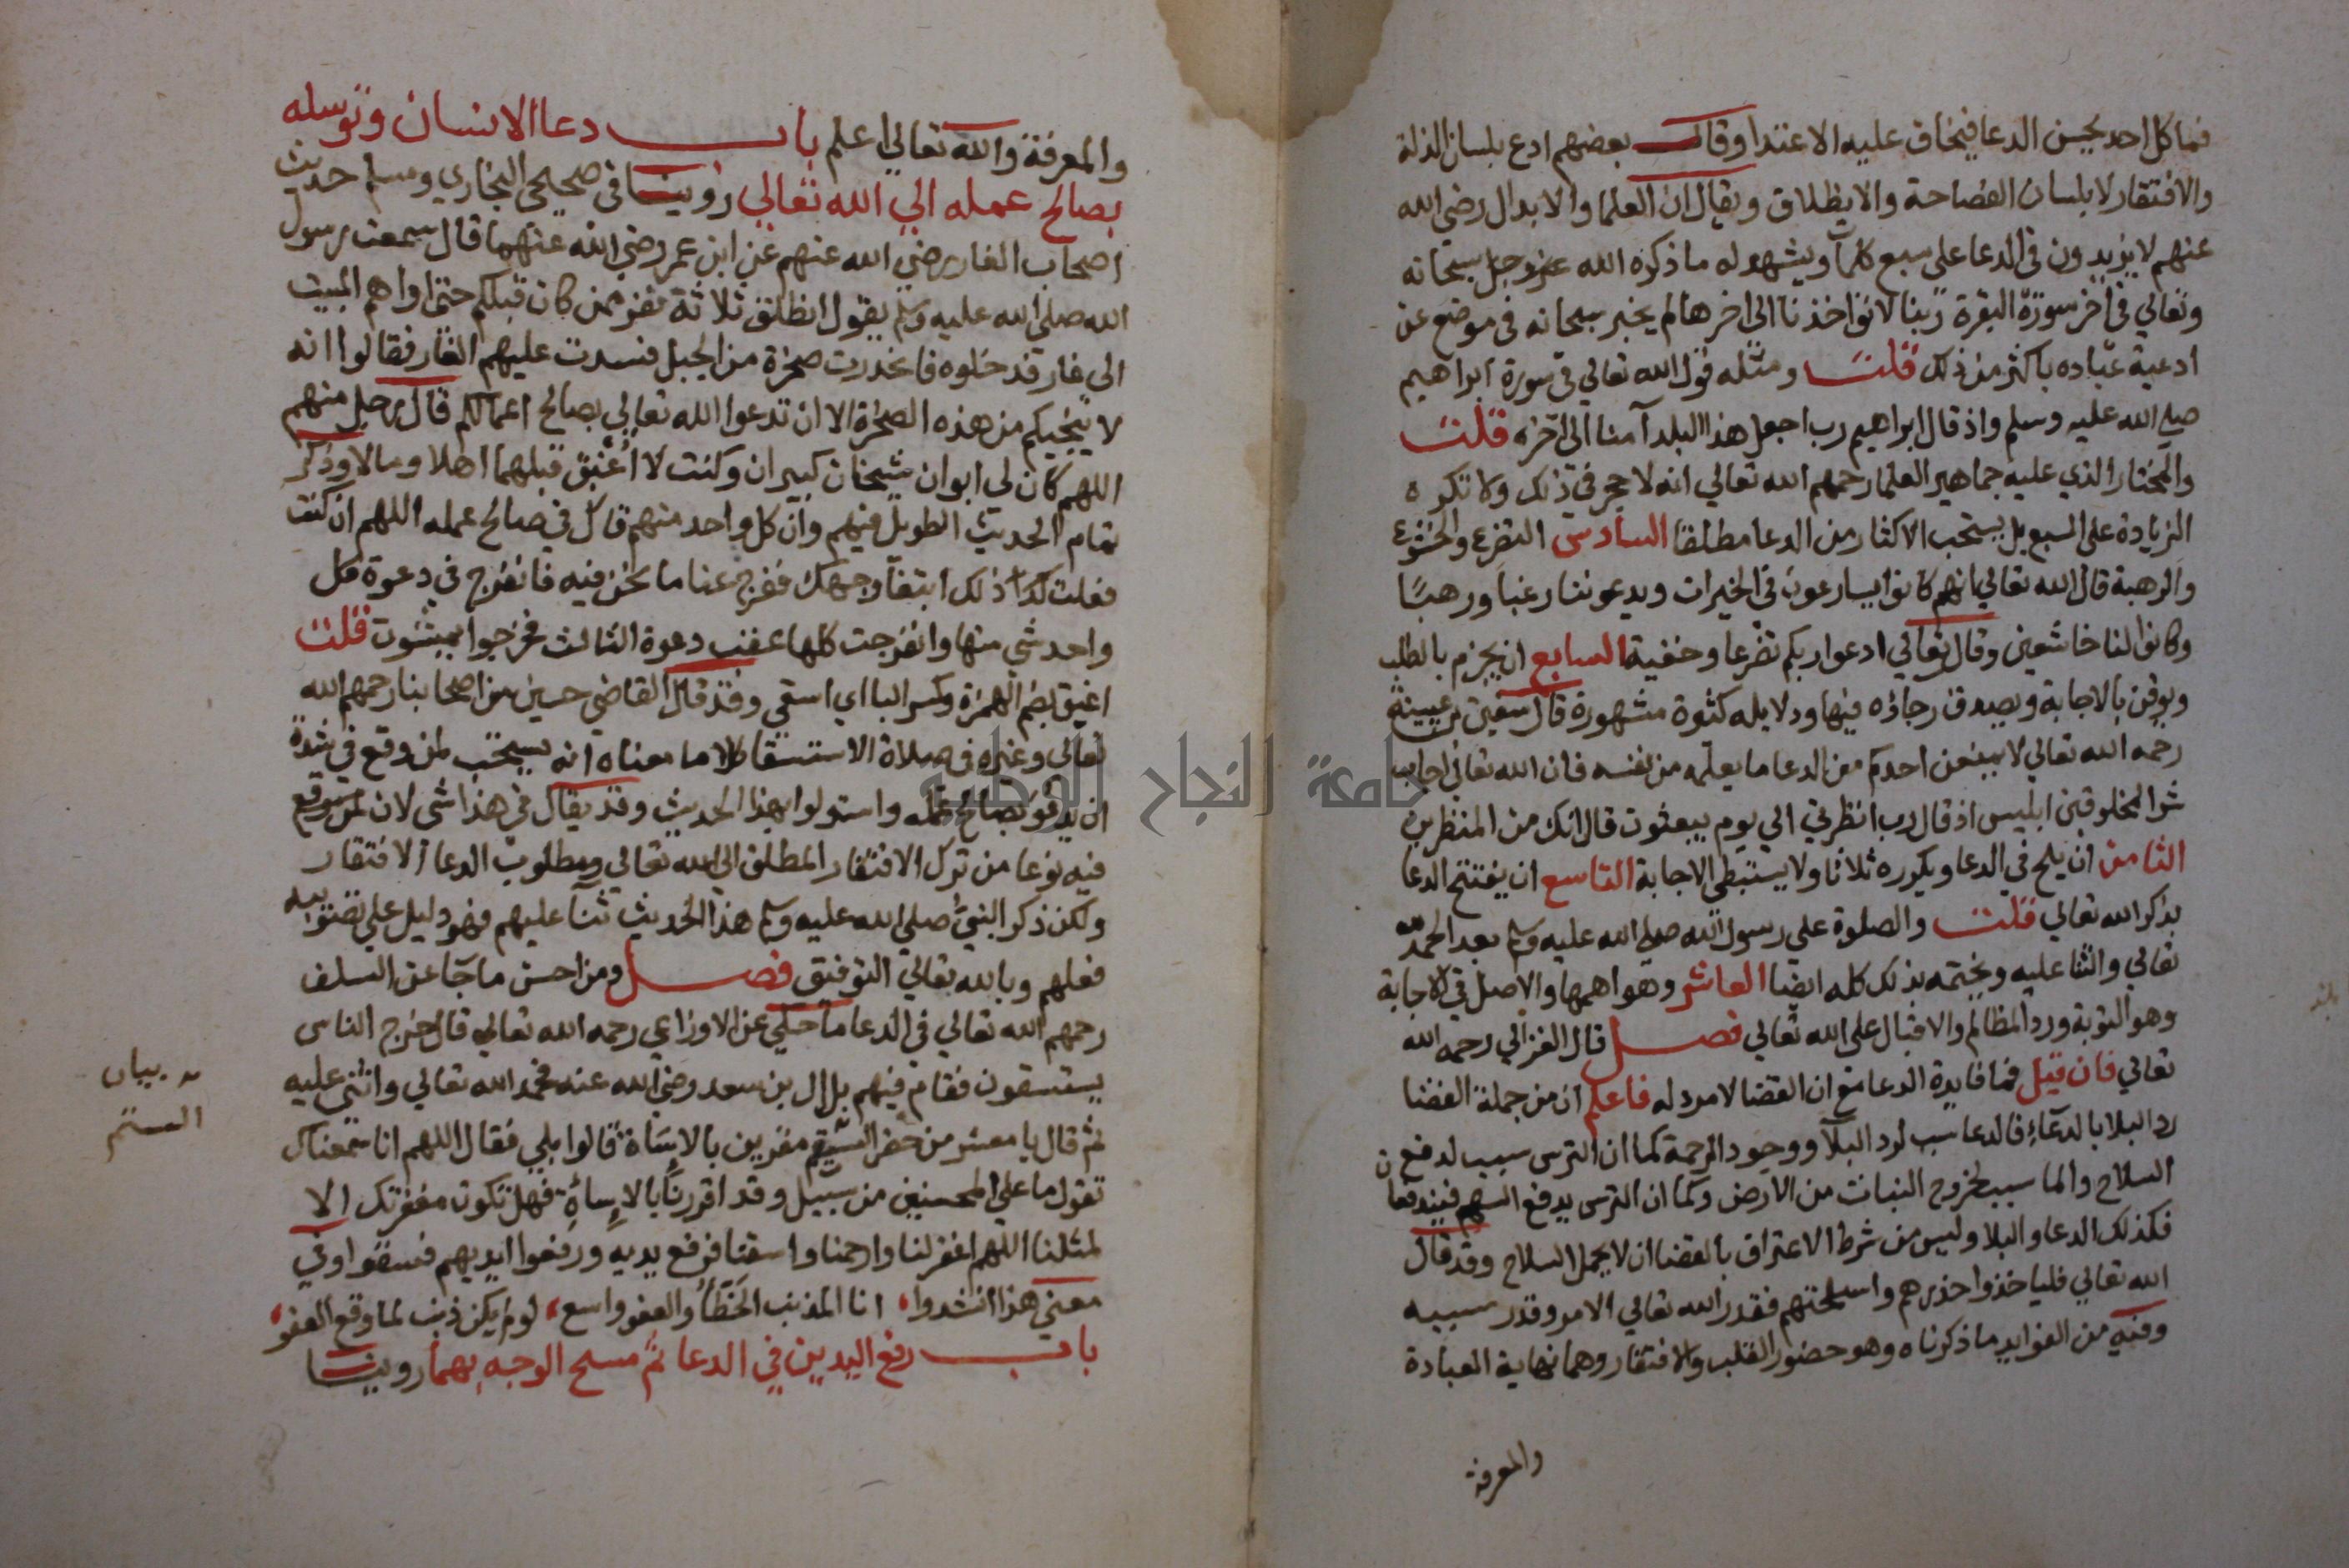 فما كل احد يحسن الدعا فيخاف عليه الاعتدا وقال بعضهم ادع بلسان الذلة
والافتقار لا بلسان الفصاحة والانطلاق ويقال ان العلما والابدال رضي الله
عنهم لا يزيدون في الدعا على سبع كلمات ويشهد له ما ذكره الله عز وجل سبحانه
وتعالي في اخر سورة البقرة ربنا لا تؤاخذنا الى اخرها لم يخبر سبحانه في موضع عن
ادعية عباده باكثر من ذلك قلت ومثله قول الله تعالي في سورة ابراهيم
صلى الله عليه وسلم واذ قال ابراهيم رب اجعل هذا البلد آمنا الى آخره قلت
والمختار الذي عليه جماهير العلما رحمهم الله تعالي انه لا حجر في ذلك ولا تكره
الزيادة على السبع بل يستحب الاكثار من الدعا مطلقا السادس التضرع والخشوع
والرهبة قال الله تعالي انهم كانوا يسارعون في الخيرات ويدعوننا رغبا ورهبا
وكانوا لنا خاشعين وقال تعالي ادعوا ربكم تضرعا وخفية السابع ان يجزم بالطلب
ويوقن بالاجابة ويصدق رجاؤه فيها ودلايله كثيرة مشهورة قال سفين بن عيينة
رحمه الله تعالي لا يمنعن احدكم من الدعا ما يعلمه من نفسه فان الله تعالى اجاب
شر المخلوقين ابليس اذ قال رب انظرني الي يوم يبعثون قال انك من المنظرين
الثامن ان يلح في الدعا ويكرره ثلاثا ولا يستبطي الاجابة التاسع ان يفتتح الدعا
بذكر الله تعالي قلت والصلوة علي رسول الله صلى الله عليه وسلم بعد الحمد لله
تعالي والثنا عليه ويختمه بذلك كله ايضا العاشر وهو اهمها والاصل في الاجابة
وهو التوبة ورد المظالم والاقبال على الله تعالي فصل قال الغزالي رحمه الله
تعالي فان قيل فما فايدة الدعا مع ان القضا لا مرد له فاعلم ان من جملة القضا
رد البلا بالدعاء فالدعا سبب لرد البلآ ووجود الرحمة كما ان الترس سبب لدفع
السلاح والما سبب لخروج النبات من الارض وكما ان الترس يدفع السهم فيتدافعان
فكذلك الدعا والبلا وليس من شرط الاعتراف بالقضا ان لا يحمل السلاح وقد قال
الله تعالي فلياخذوا حذرهم واسلحتهم فقدر الله تعالي الامر وقدر سببه
وفيه من الفوايد ما ذكرناه وهو حضور القلب والافتقار وهما نهاية العبادة
والمعرفة
والمعرفة والله تعالي اعلم باب دعا الانسان وتوسله
بصالح عمله الي الله تعالي روينا في صحيحي البخاري ومسلم حديث
اصحاب الغار رضي الله عنهم عن ابن عمر رضي الله عنهما قال سمعت رسول
الله صلى الله عليه وسلم يقول انطلق ثلاثة نفر ممن كان قبلكم حتى اواهم المبيت
الى غار فدخلوه فانحدرت صخرة من الجبل فسدت عليهم الغار فقالوا انه
لا ينجيكم من هذه الصخرة الا ان تدعوا الله تعالي بصالح اعمالكم قال رجل منهم
اللهم كان لي ابوان شيخان كبيران وكنت لا أغبق قبلهما اهلا ومالا وذكر
تمام الحديث الطويل فيهم وان كل واحد منهم قال في صالح عمله اللهم ان كنت
فعلت ذلك ابتغآ وجهك ففرج عنا ما نحن فيه فانفرج في دعوة كل
واحد شي منها وانفرجت كلها عقب دعوة الثالث فخرجوا يمشون قلت
اغبق بضم الهمزة وكسر البا اي اسقي وقد قال القاضي حسين من اصحابنا رحمهم الله
تعالي وغيره في صلاة الاستسقا كلاما معناه انه يستحب لمن وقع في شدة
ان يدعو بصالح عمله واستدلوا بهذا الحديث وقد يقال في هذا شي لان
فيه نوعا من ترك الافتقار المطلق الي الله تعالي ومطلوب الدعا الافتقار
ولكن ذكر النبي صلى الله عليه وسلم هذا الحديث ثنآ عليهم فهو دليل علي تصويبه
فعلهم وبالله تعالي التوفيق فصل ومن احسن ما جآ عن السلف
رحمهم الله تعالي في الدعا ما حكي عن الاوزاعي رحمه الله تعالي قال خرج الناس
يستسقون فقام فيهم بلال بن سعد رضي الله عنه فحمد الله تعالي واثنى عليه
ثم قال يا معشر من حضر الستم مقرين بالاساة قالوا بلى فقال اللهم انا سمعناك
تقول ما علي المحسنين من سبيل وقد اقررنا بالاساءة فهل تكون مغفرتك الا
لمثلنا اللهم اغفر لنا وارحمنا واسقنا فرفع يديه ورفعوا ايديهم فسقوا وفي
معني هذا انشدوا، انا المذنب الخطأ والعفو واسع، لو لم يكن ذنب لما وقع العفو،
باب رفع اليدين في الدعا ثم مسح الوجه بهما روينا
بيان
الستم
جامعة النجاح الوطنية